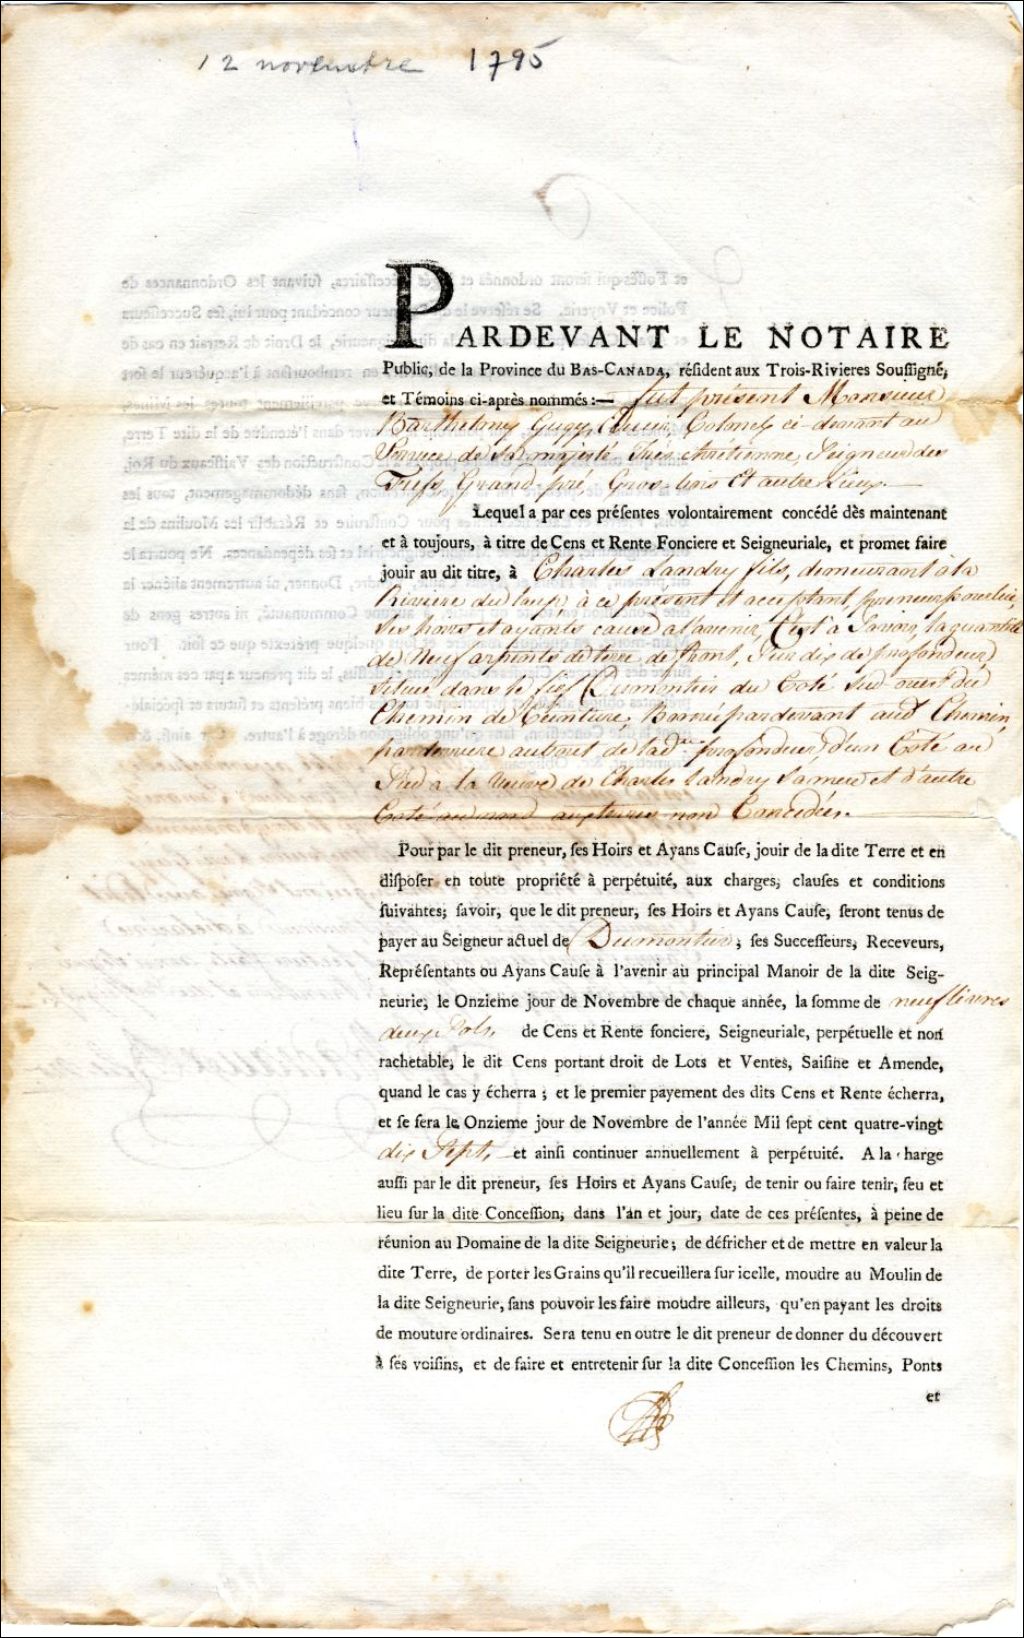 12 novembre 1795
PARDEVANT LE NOTAIRE
Public, de la Province du BAS-CANADA, réſident aux Trois-Rivieres Souſſigné,
et Témoins ci-après nommés:— fut présent Monsieur
Barthelmy Gugy, Ecuier, Colonel ci-devant au
Service de sa majesté très chrétienne, Seigneur des
Fiefs, Grand pré, Gros-bois et autre Lieux.—
Lequel a par ces préſentes volontairement concédé dès maintenant
et à toujours, à titre de Cens et Rente Fonciere et Seigneuriale, et promet faire
jouir au dit titre, à Charles Landry fils, demeurant à la
Riviere du loup à ce présent et acceptant, preneur pour lui,
ses hoirs et ayants cause à l'avenir, C'est à Savoir, la quantité
de Neuf arpents de terre de front, sur dix de profondeur,
situé dans le fief Dumontier du Coté Sud-ouest du
Chemin de Ceinture, Borné pardevant aud. Chemin,
par derriere au bout de lad. profondeur, d'un Coté au
Sud a la veuve de Charles Landry sa mere et d'autre
Coté au nord aux terres non Concédées.
Pour par le dit preneur, ſes Hoirs et Ayans Cauſe, jouir de la dite Terre et en
diſpoſer en toute propriété à perpétuité, aux charges, clauſes et conditions
ſuivantes; ſavoir, que le dit preneur, ſes Hoirs et Ayans Cauſe, ſeront tenus de
payer au Seigneur actuel de Dumontier; ſes Succeſſeurs, Receveurs,
Repréſentants ou Ayans Cauſe à l'avenir au principal Manoir de la dite Seig-
neurie, le Onzieme jour de Novembre de chaque année, la ſomme de neuf livres
deux Sols, de Cens et Rente fonciere, Seigneuriale, perpétuelle et non
rachetable, le dit Cens portant droit de Lots et Ventes, Saiſine et Amende,
quand le cas y écherra; et le premier payement des dits Cens et Rente écherra,
et se ſera le Onzieme jour de Novembre de l'année Mil ſept cent quatre-vingt
dix Sept, et ainſi continuer annuellement à perpétuité. A la charge
auſſi par le dit preneur, ſes Hoirs et Ayans Cauſe, de tenir ou faire tenir, feu et
lieu ſur la dite Conceſſion, dans l'an et jour, date de ces préſentes, à peine de
réunion au Domaine de la dite Seigneurie; de défricher et de mettre en valeur la
dite Terre, de porter les Grains qu'il recueillera ſur icelle, moudre au Moulin de
la dite Seigneurie, ſans pouvoir les faire moudre ailleurs, qu'en payant les droits
de mouture ordinaires. Sera tenu en outre le dit preneur de donner du découvert
à ſes voiſins, et de faire et entretenir ſur la dite Conceſſion les Chemins, Ponts
et